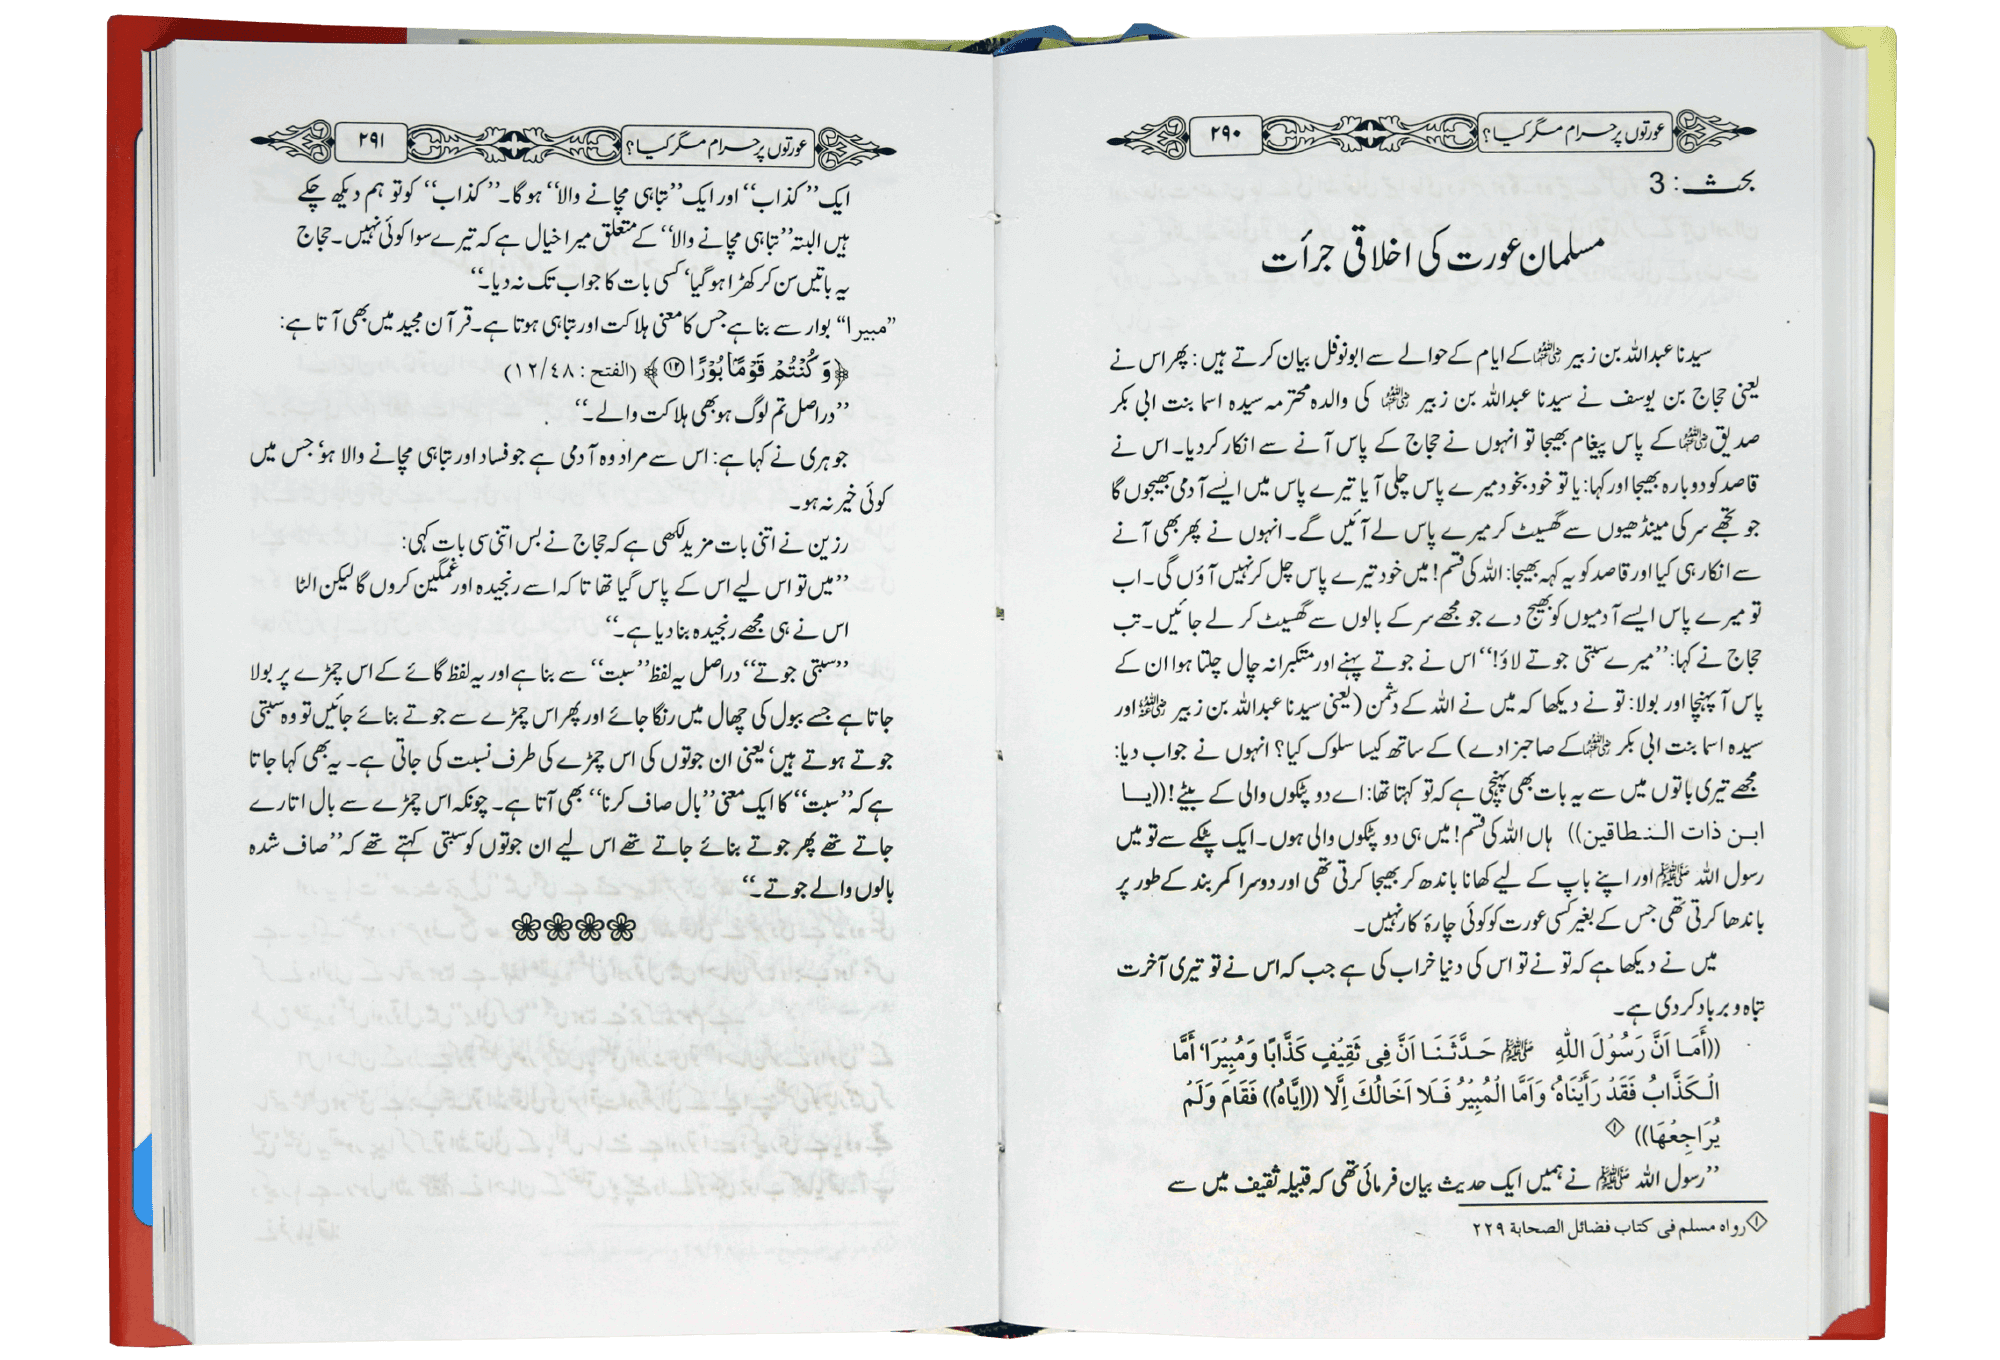 عورتوں پر حرام مگر کیا؟ ۲۹۰
بحث : 3
مسلمان عورت کی اخلاقی جرأت
سیدنا عبداللہ بن زبیر رضی اللہ عنہما کے ایام کے حوالے سے ابونوفل بیان کرتے ہیں: پھر اس نے
یعنی حجاج بن یوسف نے سیدنا عبداللہ بن زبیر رضی اللہ عنہما کی والدہ محترمہ سیدہ اسما بنت ابی بکر
صدیق رضی اللہ عنہما کے پاس پیغام بھیجا تو انہوں نے حجاج کے پاس آنے سے انکار کردیا۔ اس نے
قاصد کو دوبارہ بھیجا اور کہا: یا تو خود بخود میرے پاس چلی آ یا تیرے پاس میں ایسے آدمی بھیجوں گا
جو تجھے سر کی مینڈھیوں سے گھسیٹ کر میرے پاس لے آئیں گے۔ انہوں نے پھر بھی آنے
سے انکار ہی کیا اور قاصد کو یہ کہہ بھیجا: اللہ کی قسم! میں خود تیرے پاس چل کر نہیں آؤں گی۔ اب
تو میرے پاس ایسے آدمیوں کو بھیج دے جو مجھے سر کے بالوں سے گھسیٹ کر لے جائیں۔ تب
حجاج نے کہا: ’’میرے سبتی جوتے لاؤ!‘‘ اس نے جوتے پہنے اور متکبرانہ چال چلتا ہوا ان کے
پاس آ پہنچا اور بولا: تو نے دیکھا کہ میں نے اللہ کے دشمن (یعنی سیدنا عبداللہ بن زبیر رضی اللہ عنہ اور
سیدہ اسما بنت ابی بکر رضی اللہ عنہما کے صاحبزادے) کے ساتھ کیسا سلوک کیا؟ انہوں نے جواب دیا:
مجھے تیری باتوں میں سے یہ بات بھی پہنچی ہے کہ تو کہتا تھا: اے دو پٹکوں والی کے بیٹے! ((یا
ابن ذات النطاقین)) ہاں اللہ کی قسم! میں ہی دو پٹکوں والی ہوں۔ ایک پٹکے سے تو میں
رسول اللہ ﷺ اور اپنے باپ کے لیے کھانا باندھ کر بھیجا کرتی تھی اور دوسرا کمر بند کے طور پر
باندھا کرتی تھی جس کے بغیر کسی عورت کو کوئی چارۂ کار نہیں۔
میں نے دیکھا ہے کہ تو نے تو اس کی دنیا خراب کی ہے جب کہ اس نے تو تیری آخرت
تباہ و برباد کردی ہے۔
((أَمَا اَنَّ رَسُوْلَ اللّٰهِ ﷺ حَدَّثَنَا اَنَّ فِی ثَقِیْفٍ کَذَّابًا وَمُبِیْرًا، أَمَّا
الْکَذَّابُ فَقَدْ رَأَیْنَاهُ، وَاَمَّا الْمُبِیْرُ فَلَا اَخَالُكَ اِلَّا ((اِیَّاهُ)) فَقَامَ وَلَمْ
یُرَاجِعْهَا)) ۱
’’رسول اللہ ﷺ نے ہمیں ایک حدیث بیان فرمائی تھی کہ قبیلہ ثقیف میں سے
۱ رواہ مسلم فی کتاب فضائل الصحابة ۲۲۹
عورتوں پر حرام مگر کیا؟ ۲۹۱
ایک ’’کذاب‘‘ اور ایک ’’تباہی مچانے والا‘‘ ہوگا۔ ’’کذاب‘‘ کو تو ہم دیکھ چکے
ہیں البتہ ’’تباہی مچانے والا‘‘ کے متعلق میرا خیال ہے کہ تیرے سوا کوئی نہیں۔ حجاج
یہ باتیں سن کر کھڑا ہوگیا، کسی بات کا جواب تک نہ دیا۔‘‘
’’مبیرا‘‘ بوار سے بنا ہے جس کا معنی ہلاکت اور تباہی ہوتا ہے۔ قرآن مجید میں بھی آتا ہے:
﴿وَ كُنْتُمْ قَوْمًۢا بُوْرًا ۝۱۲﴾ (الفتح: ۱۲/۴۸)
’’دراصل تم لوگ ہو بھی ہلاکت والے۔‘‘
جوہری نے کہا ہے: اس سے مراد وہ آدمی ہے جو فساد اور تباہی مچانے والا ہو، جس میں
کوئی خیر نہ ہو۔
رزین نے اتنی بات مزید لکھی ہے کہ حجاج نے بس اتنی سی بات کہی:
’’میں تو اس لیے اس کے پاس گیا تھا تا کہ اسے رنجیدہ اور غمگین کروں گا لیکن الٹا
اس نے ہی مجھے رنجیدہ بنا دیا ہے۔‘‘
’’سبتی جوتے‘‘ دراصل یہ لفظ ’’سبت‘‘ سے بنا ہے اور یہ لفظ گائے کے اس چمڑے پر بولا
جاتا ہے جسے ببول کی چھال میں رنگا جائے اور پھر اس چمڑے سے جوتے بنائے جائیں تو وہ سبتی
جوتے ہوتے ہیں، یعنی ان جوتوں کی اس چمڑے کی طرف نسبت کی جاتی ہے۔ یہ بھی کہا جاتا
ہے کہ ’’سبت‘‘ کا ایک معنی ’’بال صاف کرنا‘‘ بھی آتا ہے۔ چونکہ اس چمڑے سے بال اتارے
جاتے تھے پھر جوتے بنائے جاتے تھے اس لیے ان جوتوں کو سبتی کہتے تھے کہ ’’صاف شدہ
بالوں والے جوتے۔‘‘